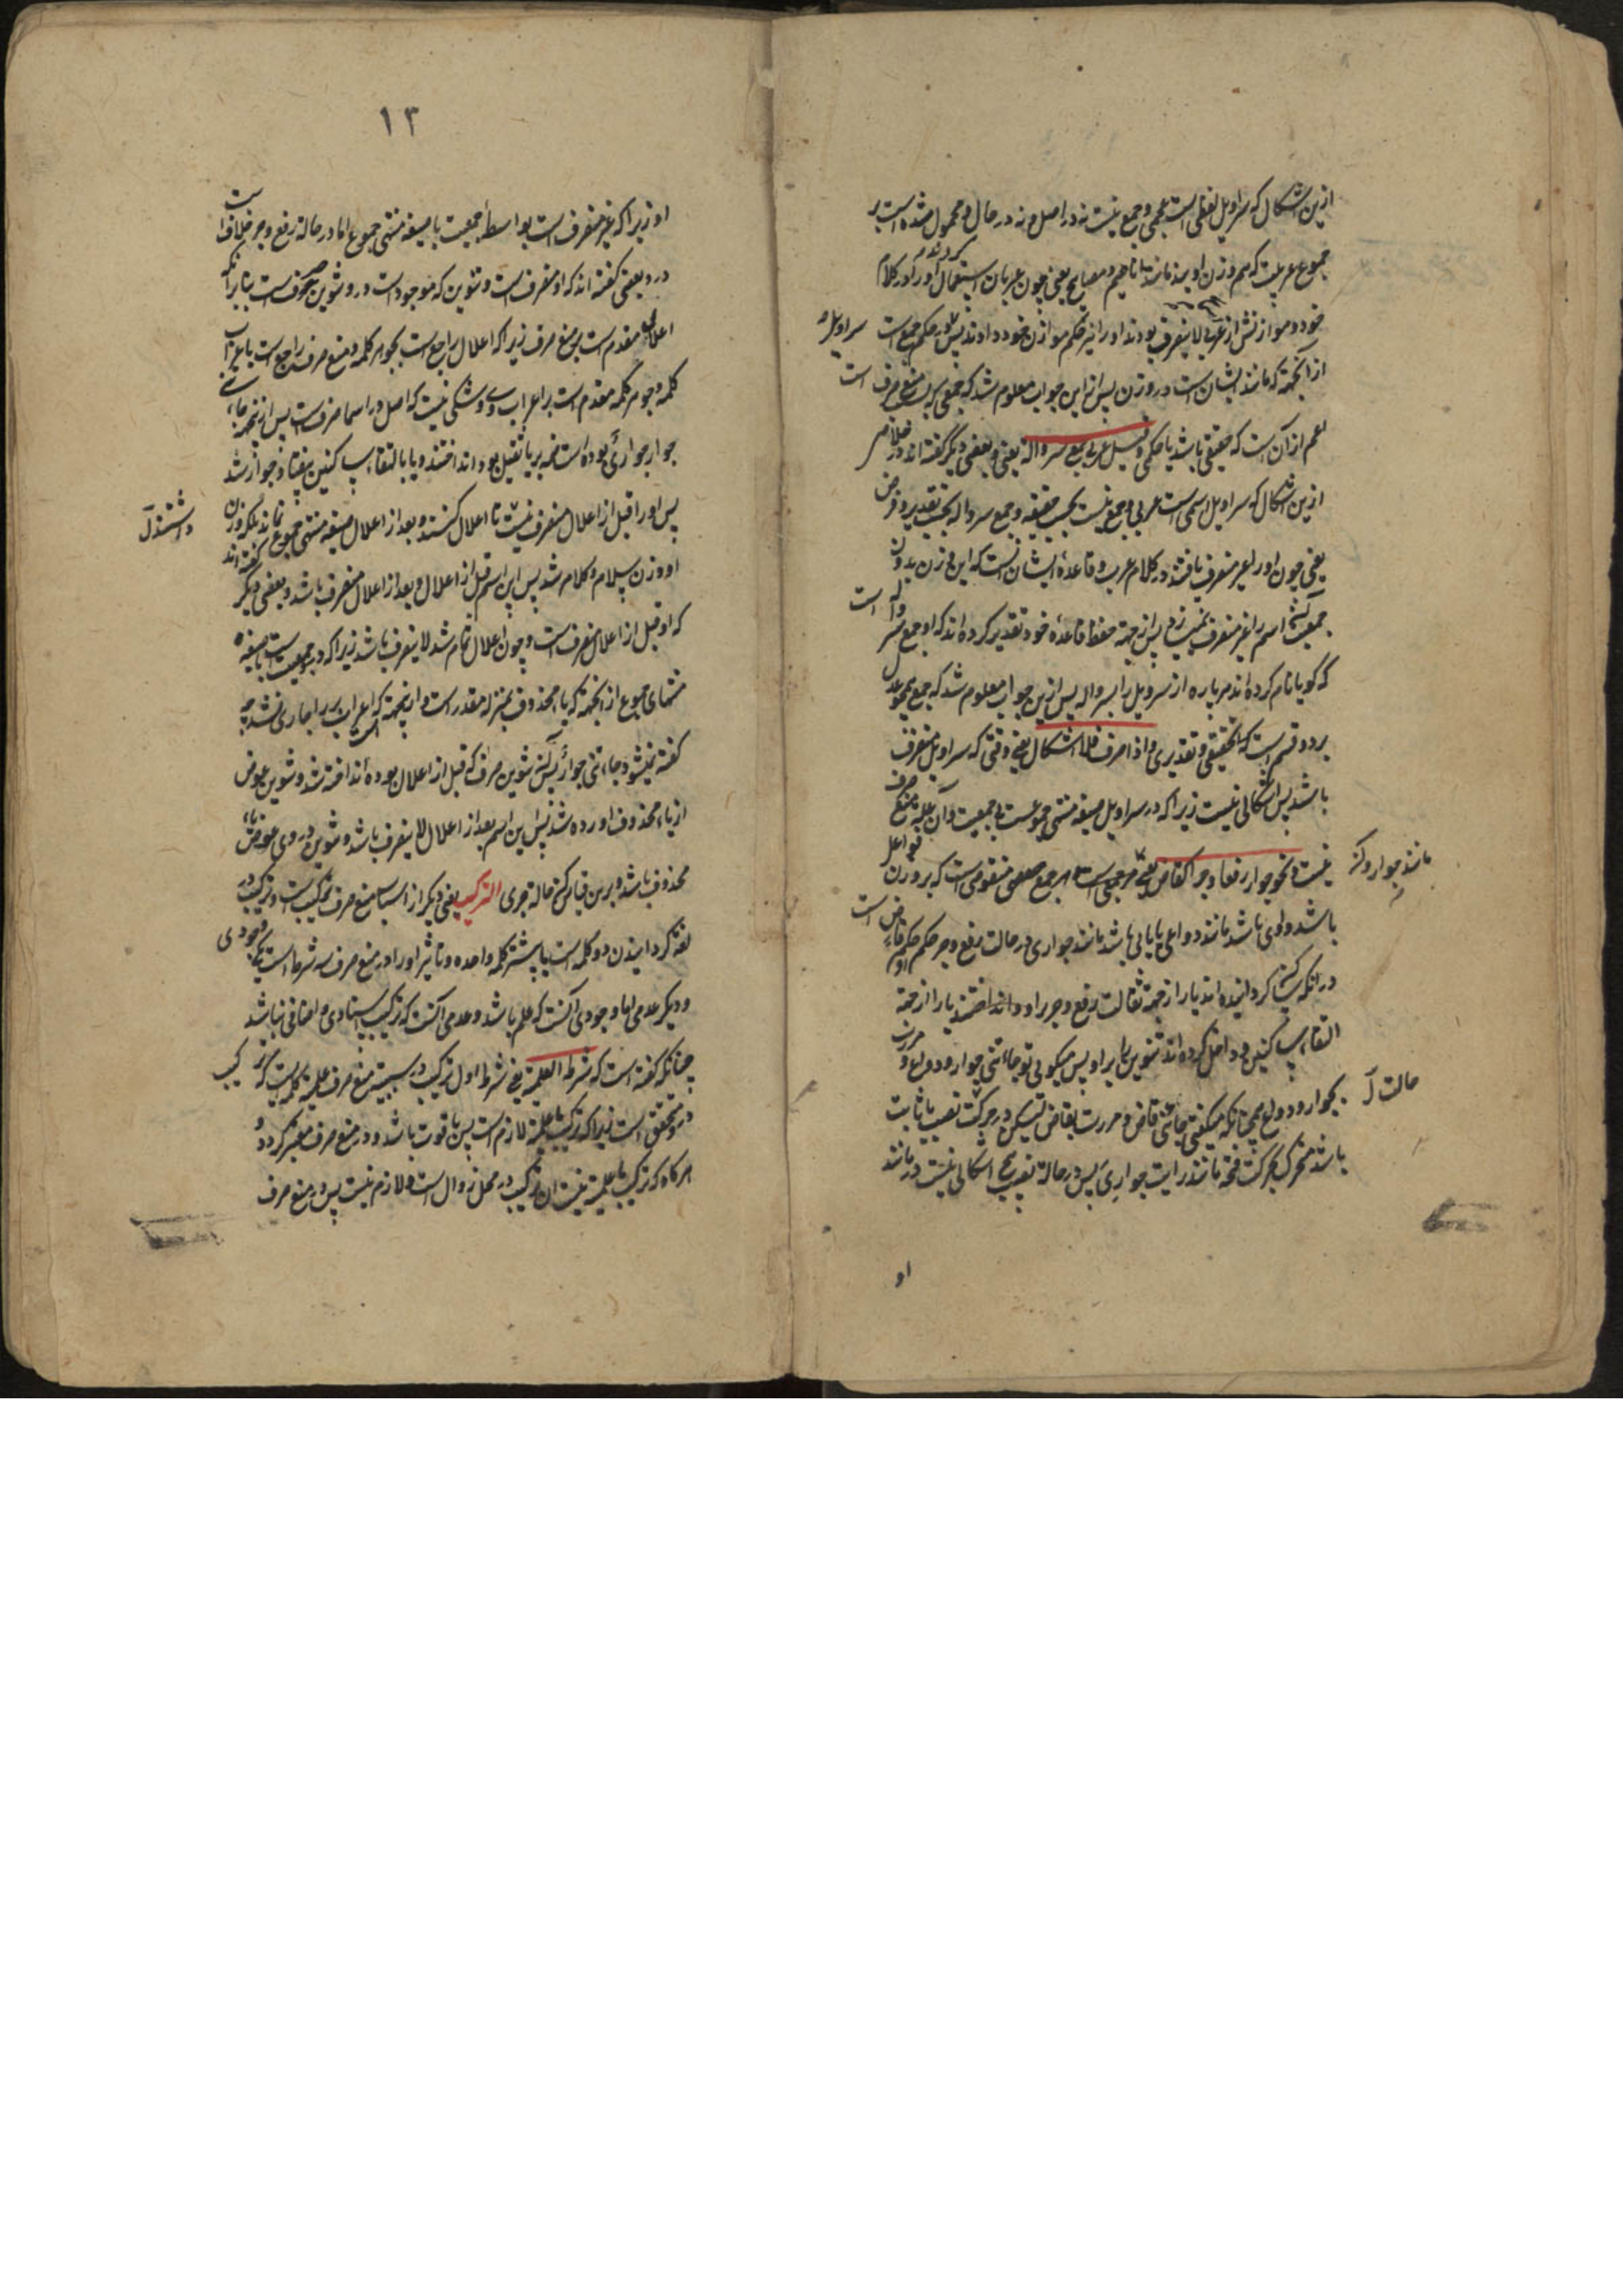 ازین اشکال که سراویل لفظی است عجمی و جمع نیست نه در اصل و نه در حال و محمول شده است بر
جموع عربیت که هم وزن اویند مانند اناعیم و مصابیح یعنی چون عربان استعمال کردند او را در کلام
خود و موازنش از عربی لا ینصرف بودند او را نیز حکم موازن خود دادند پس در حکم جمع است سراویل
از آنجهة که مانند ایشان است در وزن پس از این جواب معلوم شد که جمعی که سبب منع صرف است
اعم از آن است که حقیقی باشد یا حکمی و قیل عربی جمع سروالة یعنی و بعضی دیگر گفته اند در خلاص
ازین اشکال که سراویل اسمی است عربی و جمع نیست بحسب حقیقه و جمع سروالة بحسب تقدیر و فرض
یعنی چون او را غیر منصرف یافتند در کلام عرب و قاعدهٔ ایشان آنست که این وزن بدون
جمعیت اسم را غیر منصرف نمیسازد پس از جهة حفظ قاعدهٔ خود تقدیر کرده اند که او جمع سروالة است
که گویا نام کرده اند هر پاره از سراویل را بسرواله پس ازین جواب معلوم شد که جمع
بر دو قسم است که تحقیقی و تقدیری و اذا صرف فلا اشکال یعنی وقتی که سراویل منصرف
باشد پس اشکالی نیست زیرا که در سراویل صیغه منتهی جموعست بی جمعیت و آن علة منع صرف
نیست و نحو جوار رفعا و جرا کقاض یعنی هر جمعی است هر جمع منقوصی است که بر وزن فواعل
باشد واوی باشد مانند دواعی یا یایی باشد مانند جواری در حالت رفع و جر حکم او حکم قاض است
مانند جوار و
در آنکه ساکن گردانیده اند یا را از جهة ثقالت رفع و جر بر او و انداختند یا را از جهة
التقاء ساکنین و داخل کرده اند تنوین را بر او پس میگویی تو جاءتنی جوار و دواع و مررت
بجوار و دواع همچنانکه میگفتی جاءنی قاض و مررت بقاض لیکن در حرکت نصب یا ثابت
حالت
باشد متحرک بحرکت فتحة مانند رایت جواری پس در حالة نصب هیچ اشکالی نیست در مانند
او
١٣
او زیرا که غیر منصرف است بواسطهٔ جمعیت با صیغه منتهی جموع اما در حالة رفع و جر خلاف است
در و بعضی گفته اند که او منصرف است و تنوین که موجود است در و تنوین صرف است بنا بر آنکه
اعلال مقدم است بر منع صرف زیرا که اعلال راجع است بجوهر کلمه و منع صرف راجع است باعراب
کلمه و جوهر کلمه مقدم است بر اعراب وی و شکی نیست که اصل در اسما صرف است پس از نجهة
جوار جواری بوده است ضمه بر یا ثقیل بود انداختند و یا بالتقاء ساکنین بیفتاد جوار شد
پس او را قبل از اعلال منصرف تا اعلال کنند و بعد از اعلال صیغه منتهی جموع نماند بلکه بر وزن
داشتند
او وزن سلام و کلام شد پس این اسم قبل از اعلال و بعد از اعلال منصرف باشد و بعضی دیگر گفته اند
که او قبل از اعلال منصرف است و چون اعلال تمام شد لا ینصرف باشد زیرا که در و جمعیت است با صیغه
منتهای جموع از آنجهة که یاء محذوف بمنزله مقدر است و از نجهة که اعراب بر را جاری نشد
گفته نمیشود جاءتنی جوار پس آن تنوین صرف که قبل از اعلال بوده انداخته شد و تنوین عوض
از یاء محذوف آورده شد پس این اسم بعد از اعلال لا ینصرف باشد و تنوین در وی عوض یاء
محذوف باشد و برین قیاس کن حالة جری الترکیب یعنی دیگر از اسباب منع صرف ترکیبست و ترکیب در
لغة گردانیدن دو کلمه است یا بیشتر کلمه واحده و تاثیر او را در منع صرف سه شرط است یکی وجودی
و دیگر عدمی اما وجودی آنست که علم باشد و عدمی آنست که ترکیب اسنادی و اضافی نباشد
چنانکه گفته است که شرطه العلمیة یعنی شرط اول ترکیب در سببیة منع صرف علمیة کلمه ایست که ترکیب
در و متحقق است زیرا که ترکیب با علمیة لازم است پس با قوت باشد و در منع صرف معتبر گردد و
هر گاه که ترکیب با علمیة نیست آن ترکیب در محل زوال است و لازم نیست پس در منع صرف